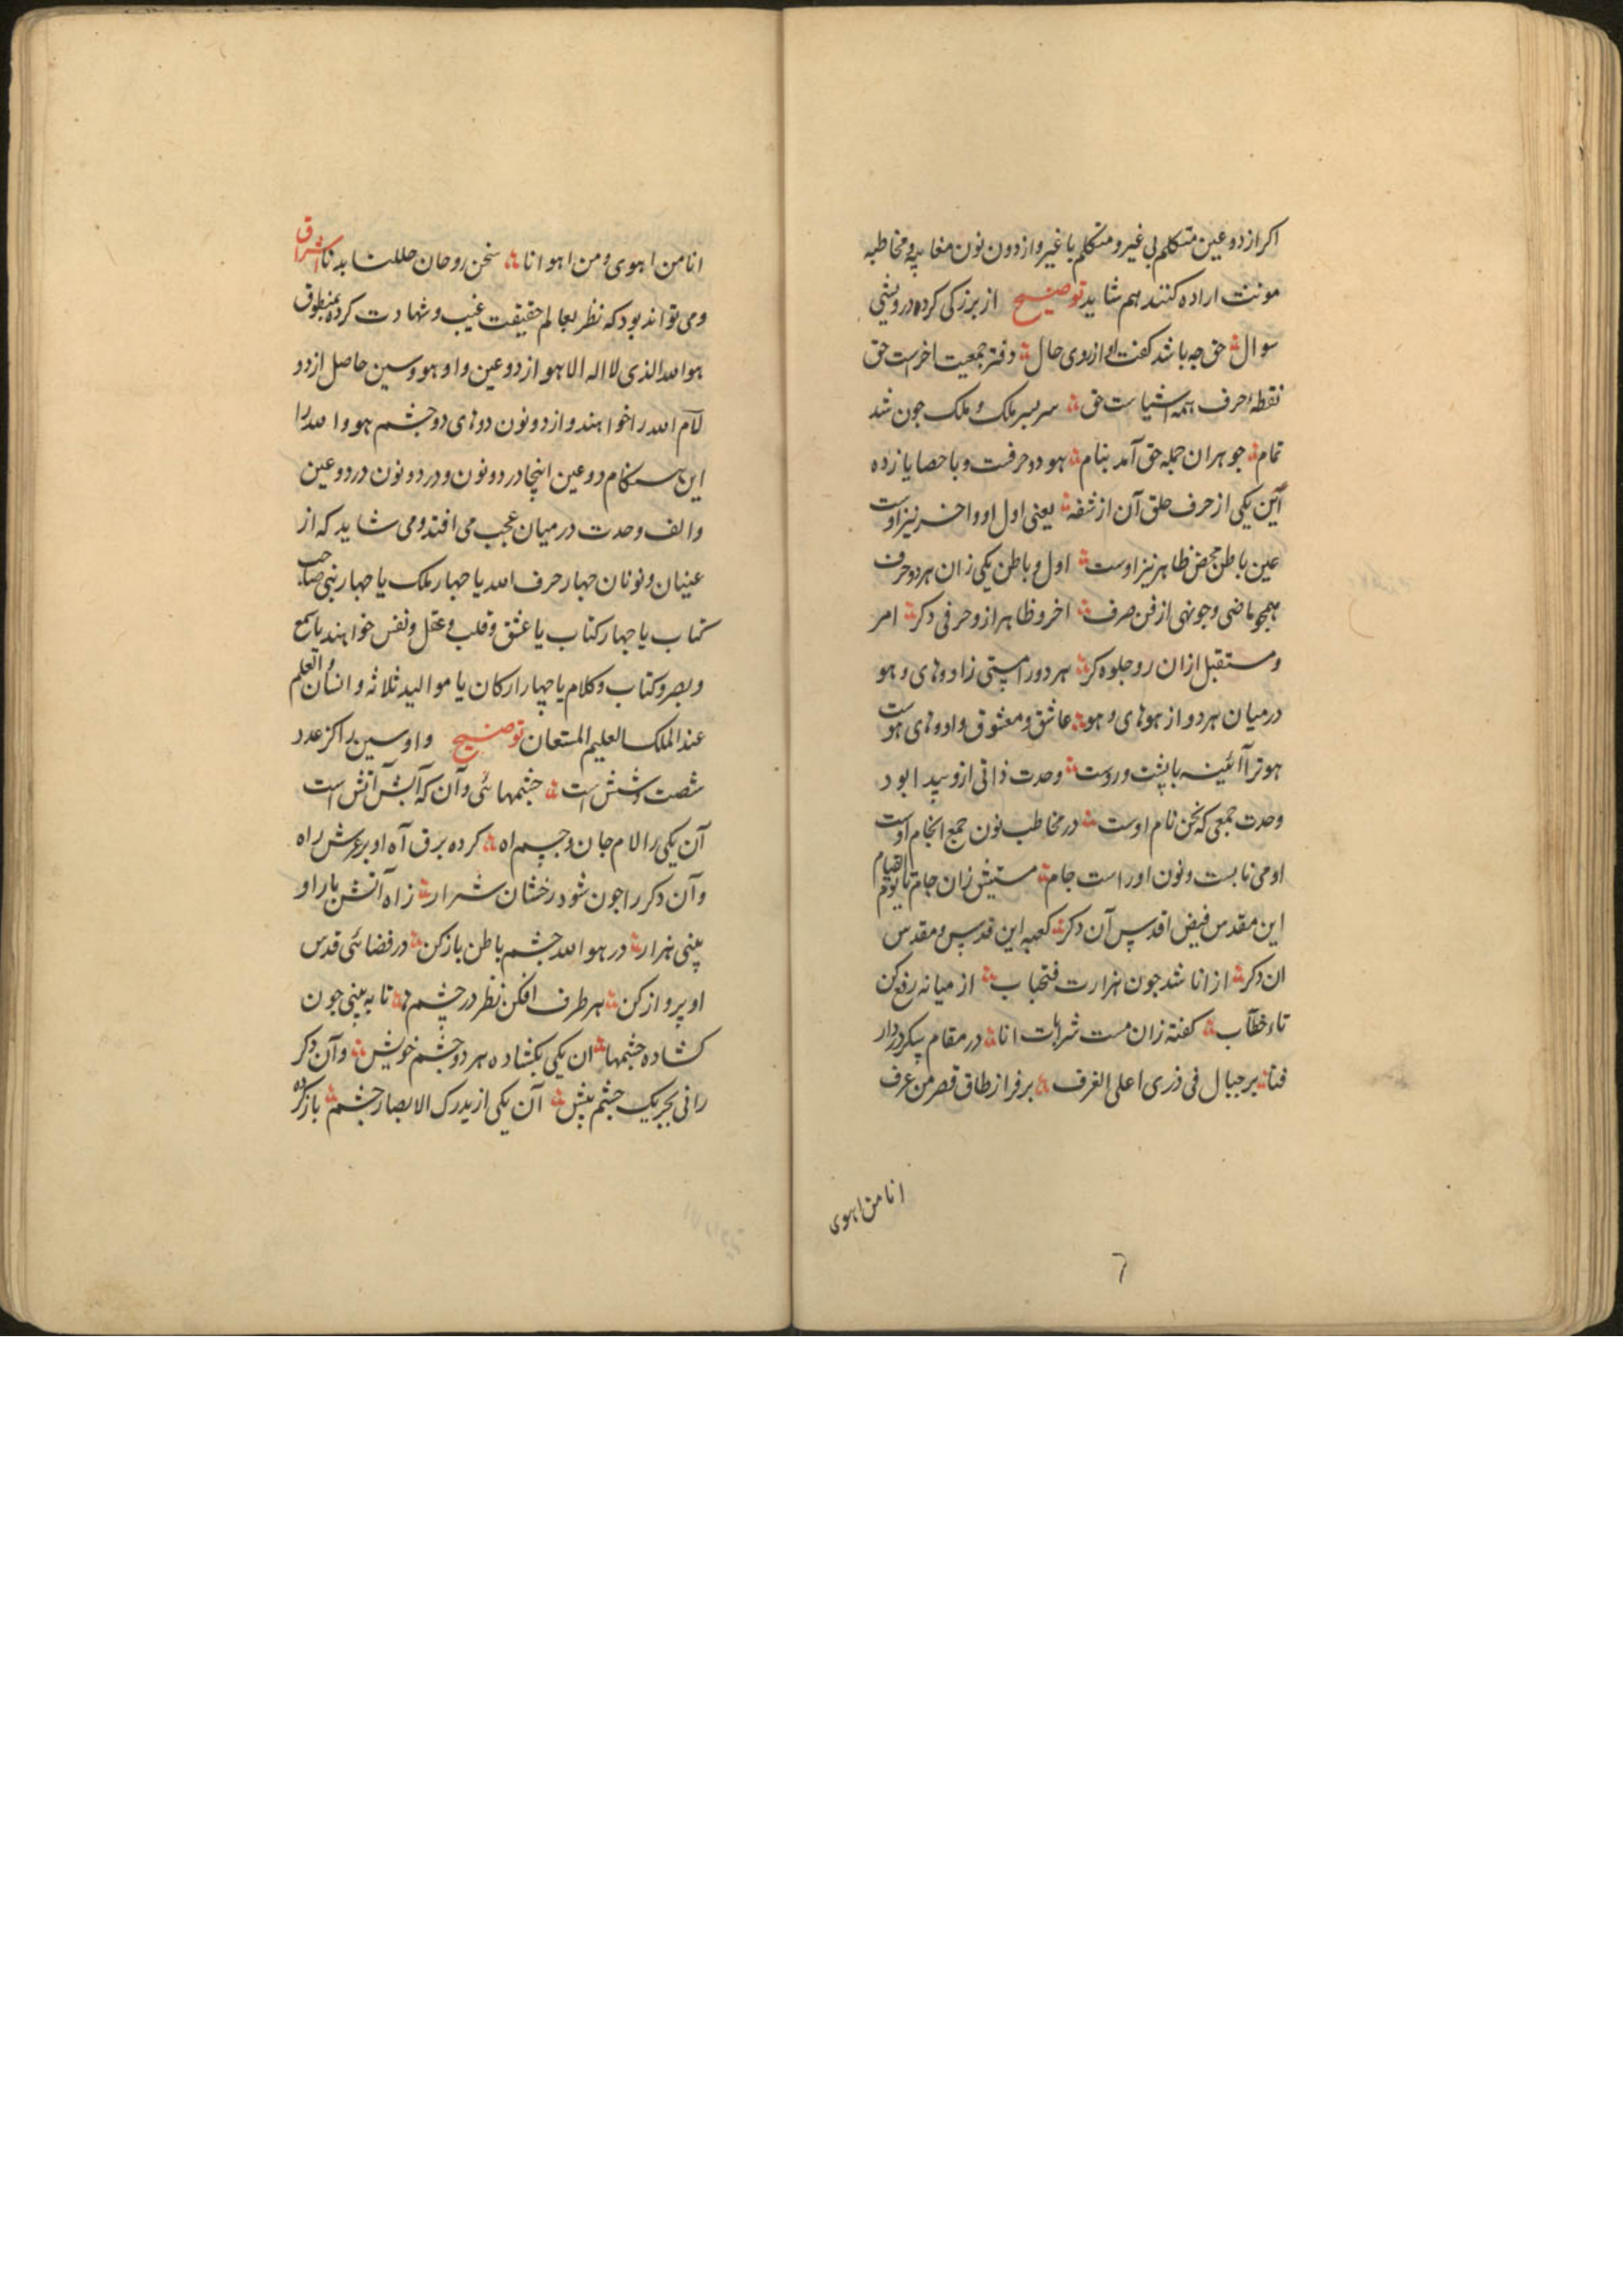 اکر از دو عین متکلم بی غیر و متکلم با غیر و از دون نون مغایبه و مخاطبه
مونث اراده کنند هم شاید توضیح از بزرکی کرده درویشی
سوال حق چه باشد کفت او از روی حال دفتر جمعیت اخرست حق
نقطه حرف همه اشیاست حق سربسر ملک و ملک جون شد
تمام جوهر ان جمله حق آمد بنام هو دو حرفست و باحصا یازده
این یکی از حرف حلق آن از شفه یعنی اول او و اخر نیز اوست
عین باطن محض ظاهر نیز اوست اول و باطن یکی زان هر دو حرف
همچو ماضی و جو نهی از فن صرف اخر و ظاهر ازو حرفی دکر امر
و مستقبل ازان رو جلوه کر هر دو را هستی زا دوهای و هو
در میان هر دو از هوهای و هو عاشق و معشوق وا دوهای هوست
هو ترا آئینه با پشت و روست وحدت ذاتی ازو پیدا بود
وحدت جمعی که نحن نام اوست در مخاطب نون جمع انجام اوست
او می نابست و نون او راست جام مستیش زان جام تا یوم القیام
این مقدس فیض اقدس آن دکر کعبه این قدس و مقدس
ان دکر از انا شد جون هزارت فتحیاب از میانه رفع کن
تاء خطاب کفته زان مست شرابات انا در مقام پیکر دردار
فنا بر جبال فی ذری اعلی الغرف بر فراز طاق قصر من عرف
انا من اهوی
٦
انا من اهوی و من اهوا انا نحن روحان حللنا بدنا اشراق
و می تواند بود که نظر بعالم حقیقت غیب و شهادت کرده بمنطوق
هو الله الذی لا اله الا هو از دو عین واو هو و سین حاصل از دو
لام الله را خواهند و از دو نون دوهای دو جشم هو و الله را
این هنکام دو عین اینجا در دو نون و در دو نون در دو عین
و الف وحدت در میان عجب می افتد و می شاید که از
عینان و نونان جهار حرف الله یا جهار ملک یا جهار نبی صاحب
کتاب یا جهار کتاب یا عشق و قلب و عقل و نفس خواهند یا سمع
و بصر و کتاب و کلام یا چهار ارکان یا موالید ثلاثه و انسان و العلم
عند الملک العلیم المستعان توضیح واو و سین را کز عدد
شصت و شش است جشمهائی و آن که آبش آتش است
آن یکی را لام جان و جسم اه کرده برق آه او بر عرش راه
و آن دکر را جون شود رخشان شرار ز آه آتش بار او
بینی هزار در هو الله جشم باطن باز کن در فضائی قدس
او پرواز کن هر طرف افکن نظر در جشم تا به بینی جون
کشاده جشمها ان یکی بکشاده هر دو جشم خویش و آن دکر
رانی بجز یک جشم بیش آن یکی از یدرک الابصار جشم باز کرده